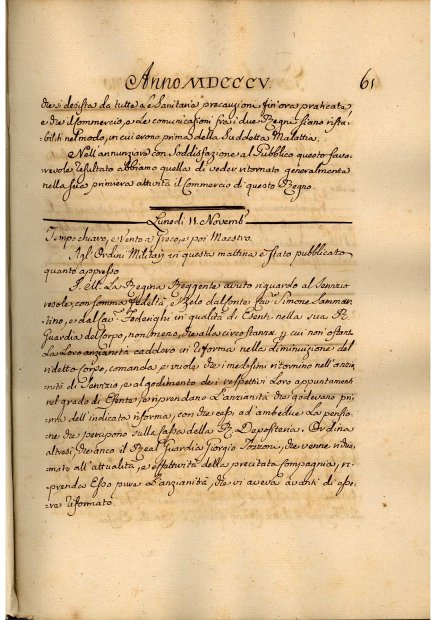 Anno MDCCCV. 61
che si desista da tutte le Sanitarie precauzioni fin'ora praticate
e che il commercio, e le comunicazioni fra i due Regni siano rista-
biliti nel modo, in cui erono prima della Suddetta Malattia.
Nell'annunziare con Soddisfazione al Pubblico questo favo-
revole resultato abbiamo quella di veder ritornato generalmente
nella sua primiera attività il Commercio di questo Regno.
Lunedì 11. Novemb.
Tempo chiaro, e Vento a Greco, e poi Maestro.
Agl'Ordini Militari in questa mattina è stato pubblicato
quanto appresso
S. M. La Regina Reggente avuto riguardo al Servizio
reso le con somma fedeltà e Zelo dal Conte Cav. Simone Sammar-
tino, e dal Cav. Federighi in qualità di Esenti nella sua R.
Guardia del Corpo, non meno, che alla circostanza per cui non ostante
la Loro anzianità caddero in Riforma nella diminuzione del
ridetto Corpo, comanda, e vuole che i medesimi ritornino nell'anzia-
nità di Servizio, e al godimento de i respettivi Loro appuntamenti
nel grado di Esente, e riprendano l'anzianità che godevano pri-
ma dell'indicata riforma, con che cessi ad ambedue la pensio-
ne che percepono sulla Cassa della R. Depositeria. Ordina
altresì, che anco il Real Guardia Giorgio Tozzoni, che venne richia-
mato all'attualità, e effettività della precitata Compagnia, ri-
prenda Esso pure l'anzianità, che vi aveva avanti di esse-
re riformato.